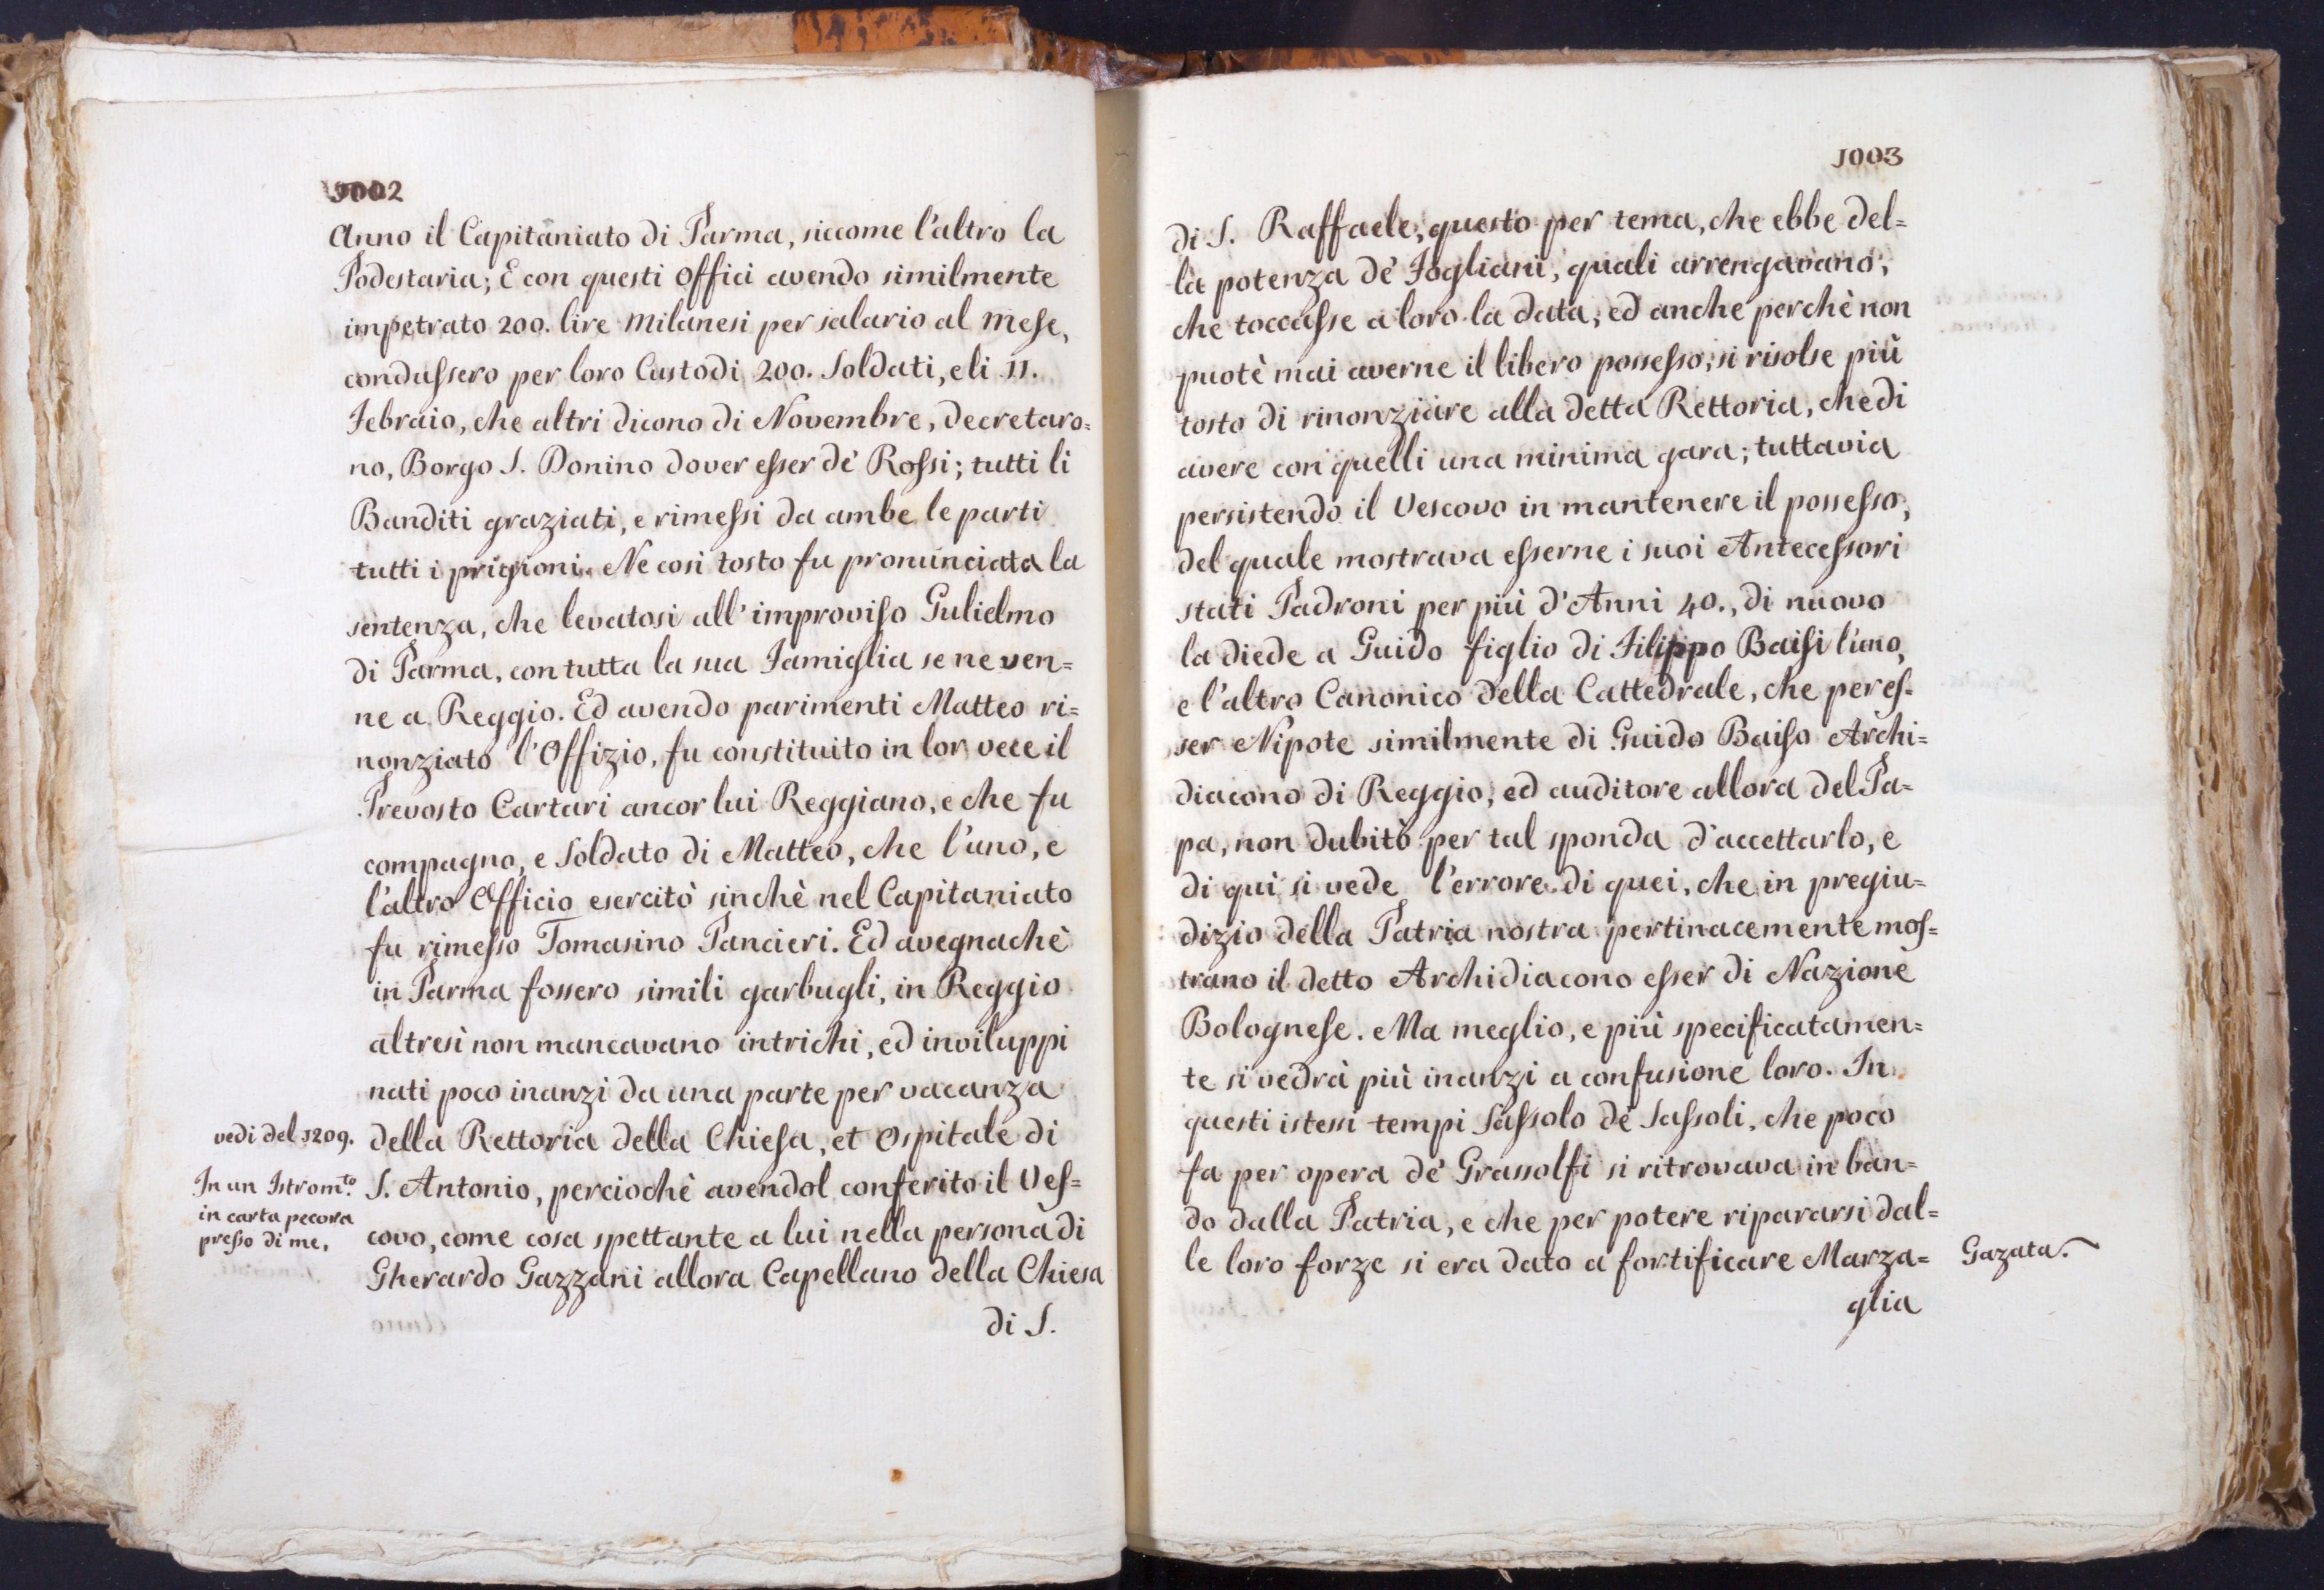 1002
Anno il Capitaniato di Parma, siccome l'altro la
Podestaria; E con questi Offici avendo similmente
impetrato 200. lire Milanesi per salario al Mese,
condussero per loro Custodi 200. Soldati, e li 11.
Febraio, che altri dicono di Novembre, decretaro=
no, Borgo S. Donino dover esser de' Rossi; tutti li
Banditi graziati, e rimessi da ambe le parti
tutti i prigioni. Ne cosi tosto fu pronunciata la
sentenza, che levatosi all'improviso Gulielmo
di Parma, con tutta la sua Famiglia se ne ven=
ne a Reggio. Ed avendo parimenti Matteo ri=
nonziato l'Offizio, fu constituito in lor vece il
Prevosto Cartari ancor lui Reggiano, e che fu
compagno, e Soldato di Matteo, che l'uno, e
l'altro Officio esercitò sinchè nel Capitaniato
fu rimesso Tomasino Pancieri. Ed avegnachè
in Parma fossero simili garbugli, in Reggio
altresì non mancavano intrichi, ed inviluppi
nati poco inanzi da una parte per vacanza
vedi del 1209.
della Rettoria della Chiesa, et Ospitale di
In un Istrom.to
in carta pecora
presso di me.
S. Antonio, perciochè avendol conferito il Ves=
covo, come cosa spettante a lui nella persona di
Gherardo Gazzani allora Capellano della Chiesa
di S.
1003
di S. Raffaele; questo per tema, che ebbe del=
la potenza de' Fogliani, quali arrengavano,
che toccasse a loro la data, ed anche perchè non
puotè mai averne il libero possesso, si risolse più
tosto di rinonziare alla detta Rettoria, che di
avere con quelli una minima gara; tuttavia
persistendo il Vescovo in mantenere il possesso,
del quale mostrava esserne i suoi Antecessori
stati Padroni per più d'Anni 40., di nuovo
la diede a Guido figlio di Filippo Baisi l'uno,
e l'altro Canonico della Cattedrale, che per es=
ser Nipote similmente di Guido Baiso Archi=
diacono di Reggio, ed auditore allora del Pa=
pa, non dubitò per tal sponda d'accettarlo, e
di quì si vede l'errore di quei, che in pregiu=
dizio della Patria nostra pertinacemente mos=
trano il detto Archidiacono esser di Nazione
Bolognese. Ma meglio, e più specificatamen=
te si vedrà più inanzi a confusione loro. In
questi istessi tempi Sassolo de' Sassoli, che poco
fa per opera de' Grassolfi si ritrovava in ban=
do dalla Patria, e che per potere ripararsi dal=
le loro forze si era dato a fortificare Marza=
Gazata.
glia